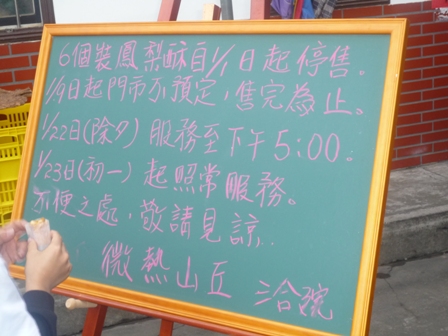 6個裝鳳梨酥自1/1日起停售。
1/9日起門市不預定,售完為止。
1/22日(除夕)服務至下午5:00。
1/23日(初一)起照常服務。
不便之處,敬請見諒..
微熱山丘